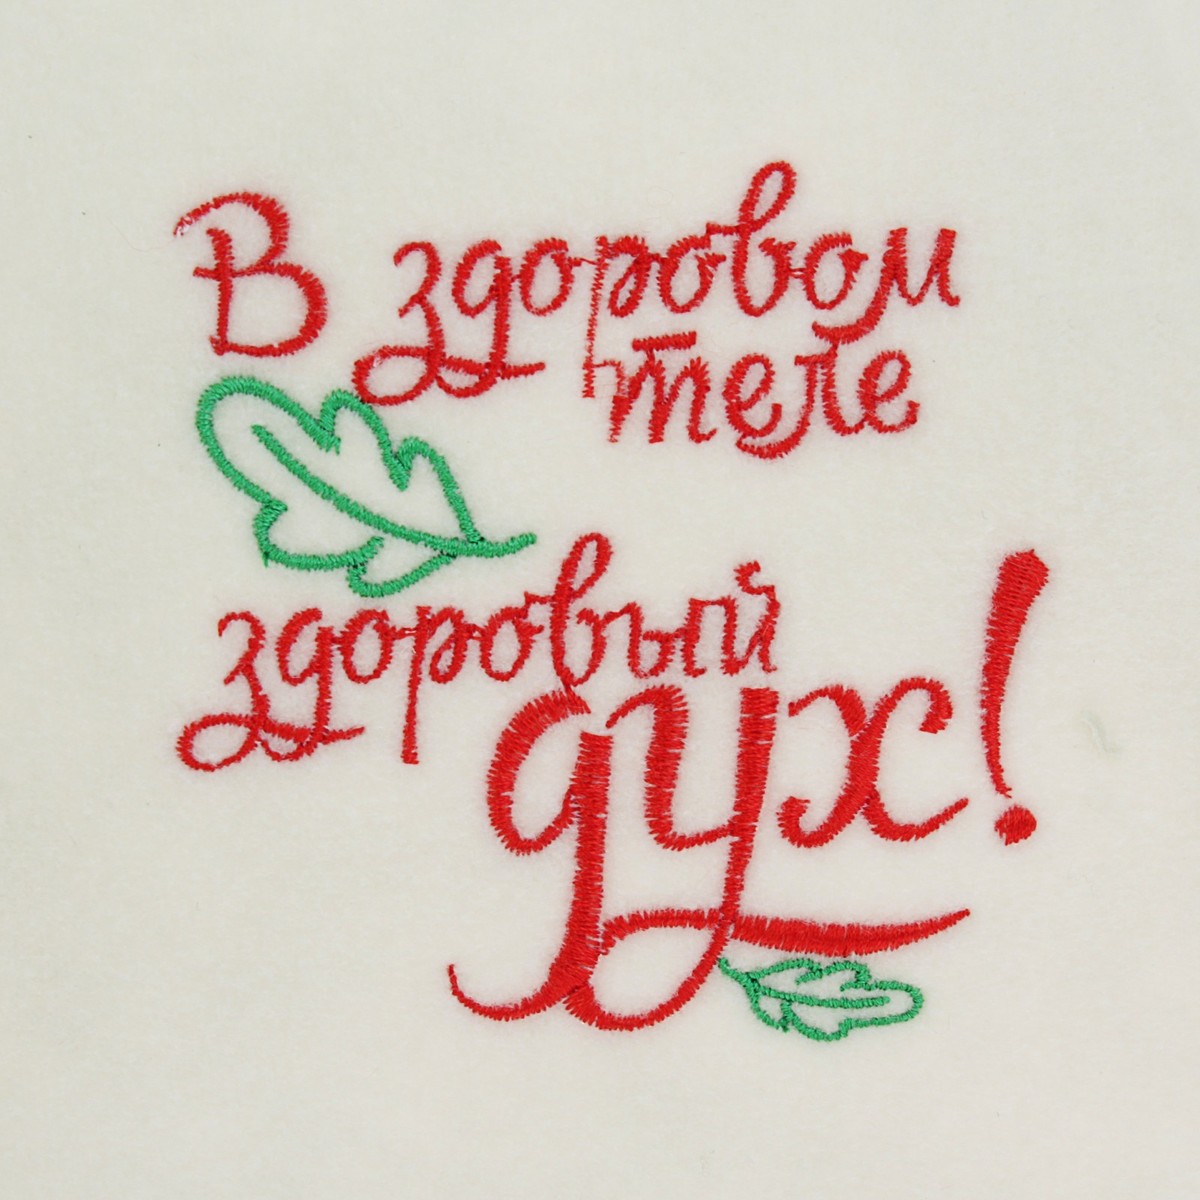 В здоровом
теле
здоровый
дух!